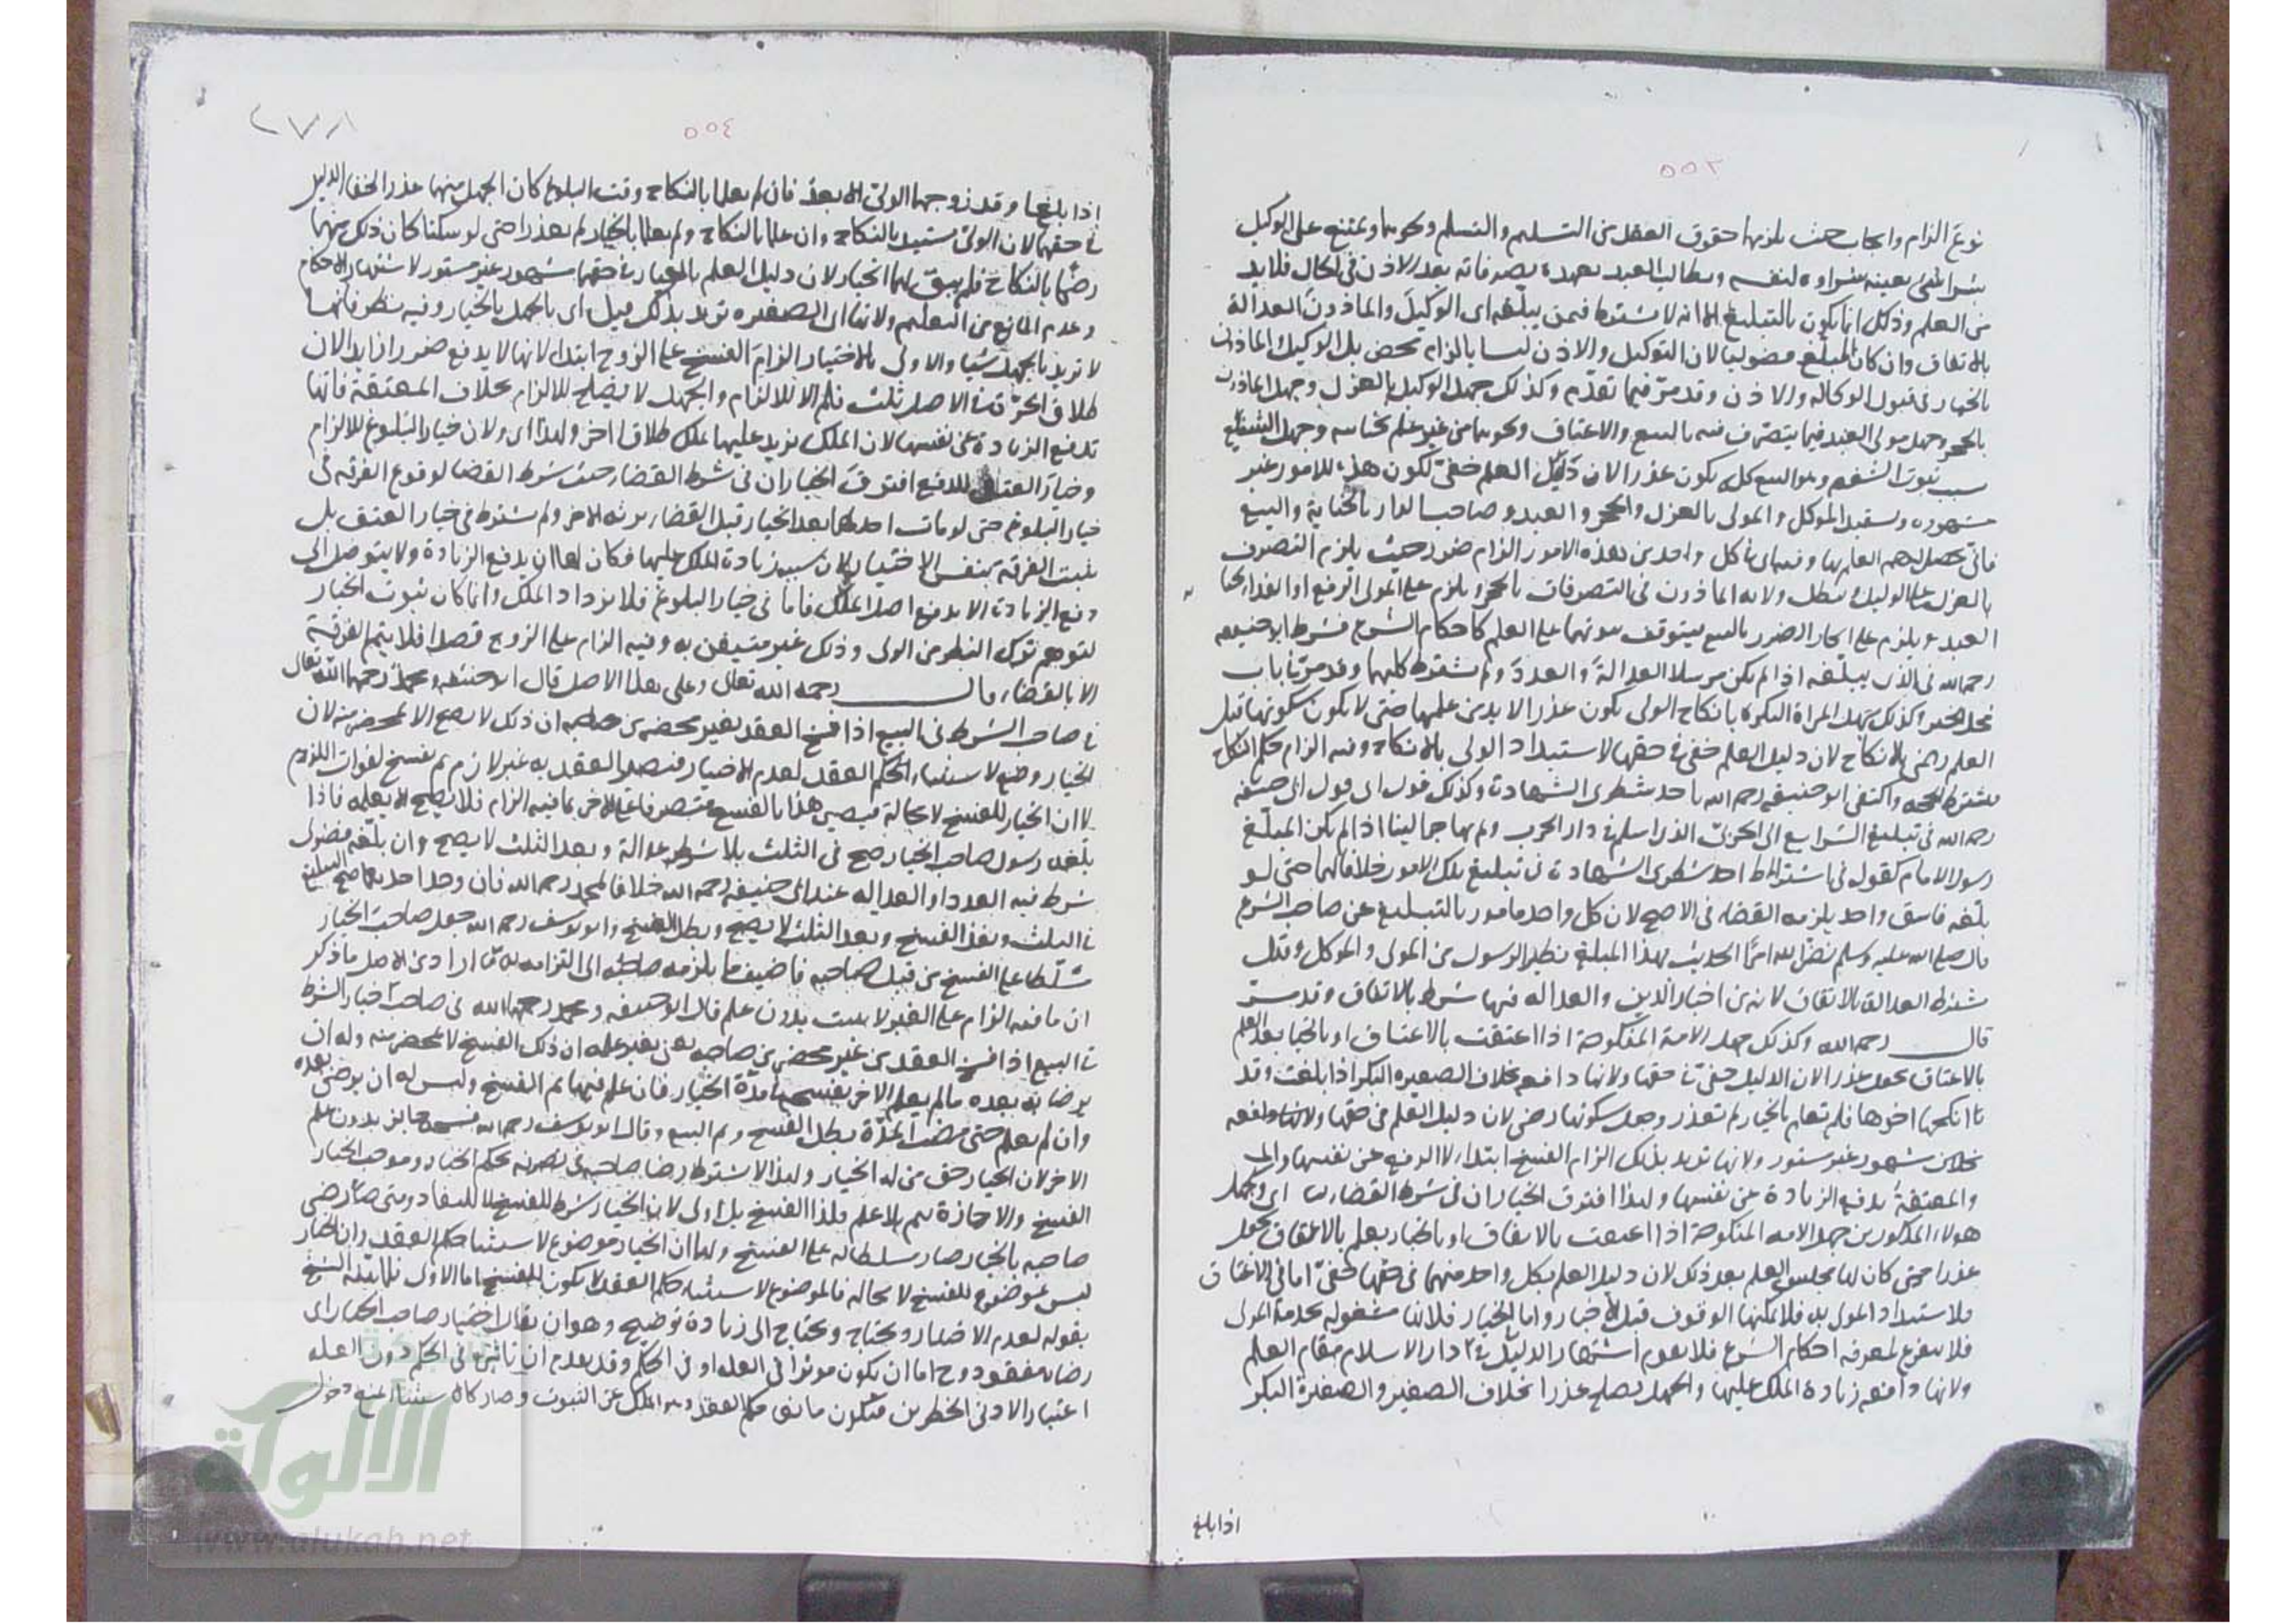 ٥٥٣
نوع الزام وايجاب حيث يلزمهما حقوق العقد من التسليم والتسلم ونحوهما ويمتنع على الوكيل
شراء شئ بعينه شراوه لنفسه ويطالب العبد بعهدة تصرفاته بعد الاذن في الحال فلابد
من العلم وذلك انما يكون بالتبليغ الا انه لا يشترط فيمن يبلغه اى الوكيل والماذون العدالة
بالاتفاق وان كان المبلغ فضوليا لان التوكيل والاذن ليسا بالزام محض بل الوكيل والماذون
بالخيار في قبول الوكالة والاذن وقد مر فيما تقدم وكذلك جهل الوكيل بالعزل وجهل الماذون
بالحجر وجهل مولى العبد فيما يتصرف فيه بالبيع والاعتاق ونحوهما من غير علم بجنايته وجهل الشفيع
بسبب ثبوت الشفعة وهو البيع كل يكون عذرا لان دليل العلم خفى لكون هذه الامور غير
مشهورة ويستبد الموكل والمولى بالعزل والحجر والعبد وصاحب الدار بالجناية والبيع
فانى يحصل لهم العلم بها وفيها اى في كل واحد من هذه الامور الزام ضرر حيث يلزم التصرف
بالعزل على الوكيل وتبطل ولاية الماذون في التصرفات بالحجر ويلزم على المولى الدفع او الفداء بجناية
العبد ويلزم على الجار الضرر بالبيع فيتوقف ثبوتها على العلم كاحكام الشرع فشرط ابو حنيفه
رحمه الله في الذى يبلغه اذا لم يكن مرسلا العدالة او العدد ولم يشترط كليهما وقد مر في باب
محل الخبر وكذلك جهل المراة البكر بانكاح الولى يكون عذرا لا بد من علمها حتى لا يكون سكوتها قبل
العلم رضى بالانكاح لان دليل العلم خفى في حقها لاستبداد الولى بالانكاح وفيه الزام حكم النكاح
واكتفى ابو حنيفه رحمه الله باحد شطرى الشهادة وكذلك قول اى قول ابى حنيفه
رحمه الله في تبليغ الشرايع الى الحربى الذى اسلم في دار الحرب ولم يهاجر الينا اذا لم يكن المبلغ
رسول الامام كقوله في اشتراط احد شطرى الشهادة في تبليغ تلك الامور خلافا لهما حتى لو
بلغه فاسق واحد يلزمه القضاء في الاصح لان كل واحد مامور بالتبليغ عن صاحب الشرع
قال صلى الله عليه وسلم نضر الله امرا الحديث فهذا المبلغ نظير الرسول من المولى والموكل وقيل
يشترط العدالة بالاتفاق لانه من اخبار الدين والعدالة فيها شرط بالاتفاق وقد مر
قال رحمه الله وكذلك جهل الامة المنكوحة اذا اعتقت بالاعتاق او بالخيار بعد العلم
بالاعتاق يجعل عذرا لان الدليل خفى في حقها ولانها دافعه بخلاف الصغيرة البكر اذا بلغت وقد
انكحها اخوها فلم تعلم بالخيار لم تعذر وجعل سكوتها رضى لان دليل العلم في حقها
مشهور غير مستور ولانها تريد بذلك الزام الفسخ ابتداء لا الدفع عن نفسها
والمعتقة تدفع الزيادة عن نفسها ولهذا افترق الخياران في شرط القضاء اى وجهل
هولاء المذكورين جهل الامة المنكوحة اذا اعتقت بالاعتاق او بالخيار بعلم بالاعتاق يجعل
عذرا حتى كان لها مجلس العلم بعد ذلك لان دليل العلم بكل واحد منهما في حقها خفى اما في الاعتاق
فلاستبداد المولى به فلا يمكنها الوقوف قبل الاخبار واما الخيار فلانها مشغولة بخدمة المولى
فلا تتفرغ لمعرفة احكام الشرع فلا يقوم اشتهار الدليل في دار الاسلام مقام العلم
ولانها دافعه زيادة الملك عليها والجهل يصلح عذرا بخلاف الصغير والصغيرة البكر
اذا بلغ
٥٥٤
٢٧٨
اذا بلغا وقد زوجهما الولى الابعد فان لم يعلما بالنكاح وقت البلوغ كان الجهل منهما عذرا لخفاء الدليل
في حقهما لان الولى مستبد بالنكاح وان علما بالنكاح ولم يعلما بالخيار لم يعذرا حتى لو سكتا كان ذلك منهما
رضا بالنكاح فلم يبق لهما الخيار لان دليل العلم بالخيار في حقهما مشهور غير مستور لاشتهار الاحكام
وعدم المانع من التعلم ولانها اى الصغيرة تريد بذلك قيل اى بالجهل بالخيار وفيه نظر فانها
لا تريد بالجهل شيئا والاولى بالاختيار الزام الفسخ على الزوج ابتداء لانها لا يدفع ضررا زايدا لان
طلاق الحرة في الاصل ثلث فلم الا للالزام والجهل لا يصلح للالزام بخلاف المعتقة فانها
تدفع الزيادة عن نفسها لان الملك يزيد عليها بملك طلاق اخر ولهذا اى ولان خيار البلوغ للالزام
وخيار العتق للدفع افترق الخياران في شرط القضاء حيث شرط القضا لوقوع الفرقة في
خيار البلوغ حتى لو مات احدهما بعد الخيار قبل القضاء يرثه الاخر ولم يشترط في خيار العتق بل
يثبت الفرقة بنفس الاختيار لان سببه زيادة الملك عليها فكان لها ان يدفع الزيادة ولا يتوصل الى
دفع الزيادة الا بدفع اصل الملك فاما في خيار البلوغ فلا يزداد الملك وانما كان ثبوت الخيار
لتوهم ترك النظر من الولى وذلك غير متيقن به وفيه الزام على الزوج قصدا فلا يتم الفرقة
الا بالقضاء قال رحمه الله تعالى وعلى هذا الاصل قال ابو حنيفه ومحمد رحمهما الله تعالى
في صاحب الشرط في البيع اذا فسخ العقد بغير محضر من صاحبه ان ذلك لا يصح الا بمحضر منه لان
الخيار وضع لاستثناء الحكم العقد لعدم الاختيار فيصير العقد به غير لازم ثم يفسخ لفوات اللزوم
لا ان الخيار للفسخ لا محالة فيصير هذا بالفسخ متصرفا على الاخر بما فيه الزام فلا يصح الا بعلمه فاذا
بلغه رسول صاحب الخيار صح في الثلث بلا شرط عدالة وبعد الثلث لا يصح وان بلغه فضولى
شرط فيه العدد او العدالة عند ابى حنيفه رحمه الله خلافا لمحمد رحمه الله فان وجد احدهما صح التبليغ
في الثلث ونفذ الفسخ وبعد الثلث لا يصح وبطل الفسخ وابو يوسف رحمه الله جعل صاحب الخيار
مسلطا على الفسخ من قبل صاحبه فاضيف ما يلزمه صاحبه الى التزامه اراد من الاصل ما ذكر
ان ما فيه الزام على الغير لا يثبت بدون علم قال ابو حنيفه ومحمد رحمهما الله في صاحب خيار الشرط
في البيع اذا فسخ العقد من غير محضر من صاحبه يعنى بغير علمه ان ذلك الفسخ لا بمحضر منه وله ان
يرضا به بعده ما لم يعلم الاخر بفسخه في مدة الخيار فان علم فيها تم الفسخ وليس له ان يرضى بعده
وان لم يعلم حتى مضت المدة بطل الفسخ وتم البيع وقال ابو يوسف رحمه الله فسخه جايز بدون علم
الاخر لان الخيار حق من له الخيار ولهذا لا يشترط رضا صاحبه في تصرفه بحكم الخيار وموجب الخيار
الفسخ والاجازة تتم بلا علم فلذا الفسخ بل اولى لان الخيار شرط للفسخ لا للنفاذ ومتى صار رضى
صاحبه بالخيار صار مسلطا له على الفسخ ولهما ان الخيار موضوع لاستثناء حكم العقد وان الخيار
ليس بموضوع للفسخ لا محالة فالموضوع لاستثناء حكم العقد لا يكون للفسخ اما الاول فلما بينه الشيخ
بقوله لعدم الاختيار ويحتاج الى زيادة توضيح وهو ان يقال اختيار صاحب الخيار اى
رضاه مفقود وح اما ان يكون موثرا في العلة او في الحكم وقد تقدم ان تاثيره في الحكم دون العلة
اعتبار الادنى الخطرين فيكون مانعا حكم العقد وهو الملك عن الثبوت وصار كانه استثنا منع دخول
الألوكة
www.alukah.net